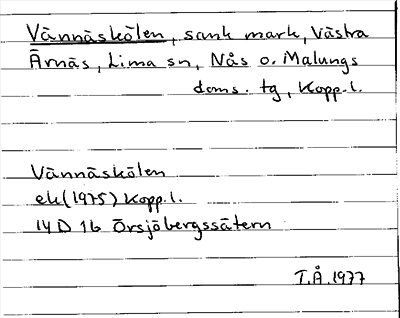 Vännäskölen, sank mark, Västra
Ärnäs, Lima sn, Nås o. Malungs
doms. tg, Kopp.l.
Vännäskölen
ek (1975) Kopp.l.
14 D 1b Örsjöbergssätern
T.Å. 1977